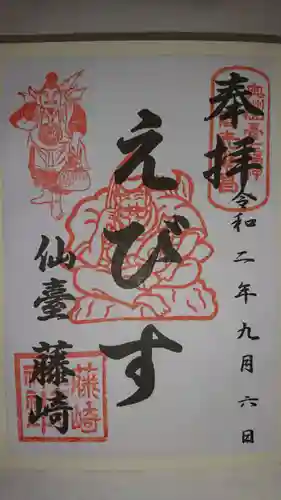 奉拝
令和二年九月六日
えびす
仙臺
藤崎
藤崎